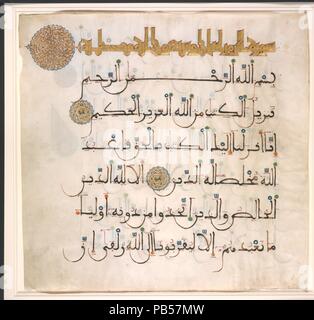 سورة الزمر
بسم الله الرحمن الرحيم
تنزيل الكتب من الله العزيز الحكيم
انا انزلنا اليك الكتب بالحق فاعبد
الله مخلصا له الدين الا لله الدين
الخالص والذين اتخذوا من دونه اوليا
ما نعبدهم الا ليقربونا الى الله زلفى ان
PB57MW